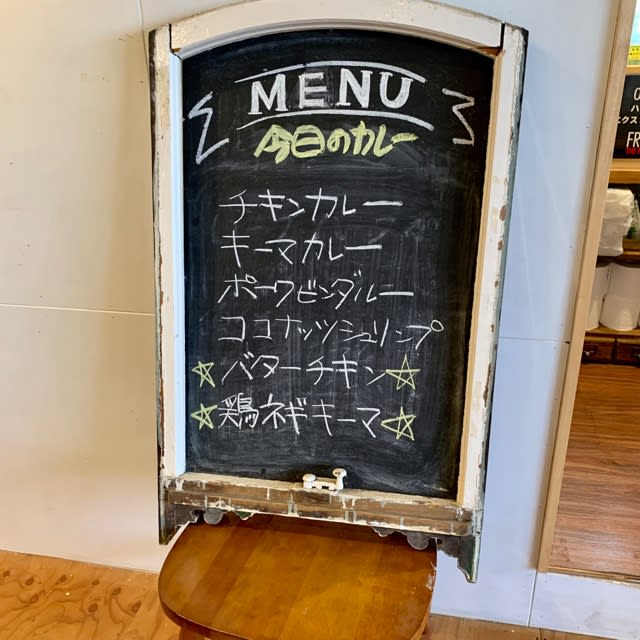 MENU
今日のカレー
チキンカレー
キーマカレー
ポークビンダルー
ココナッツシュリンプ
☆バターチキン☆
☆鶏ネギキーマ☆
FR